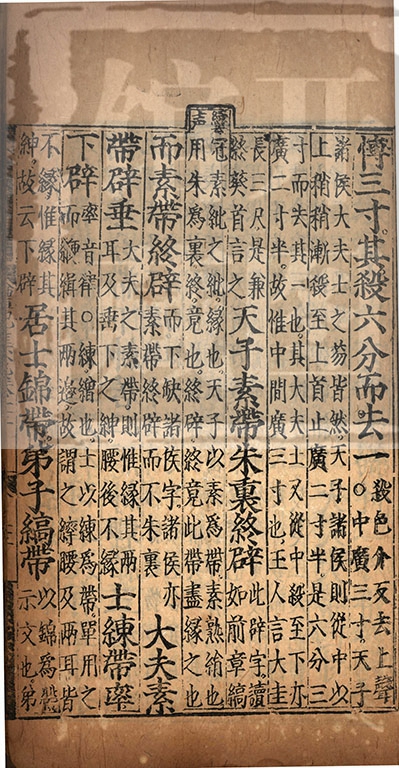 博三寸其殺六分而去一殺色介反去上聲○中廣三寸天子
諸侯大夫士之笏皆然天子諸侯則從中以
上稍稍漸殺至上首止廣二寸半是六分三
寸而去其一也其大夫士又從中殺至下亦
廣二寸半故惟中間廣三寸也玉人言大圭
長三尺是兼終葵首言之天子素帶朱裏終辟此辟字讀如前章縞
冠素紕之紕緣也天子以素爲帶素熟絹也
用朱爲裏終竟也終辟終竟此帶盡緣之也
而素帶終辟而下缺諸侯字諸侯亦素帶終辟而不朱裏大夫素
帶辟垂大夫之素帶則惟緣其兩耳及垂下之紳腰後不緣士練帶率
下辟率音律○練繒也士以練爲帶單用之而繂緝其兩邊故謂之繂腰及兩耳皆
不緣惟緣其紳故云下辟居士錦帶弟子縞帶以錦爲帶示文也弟